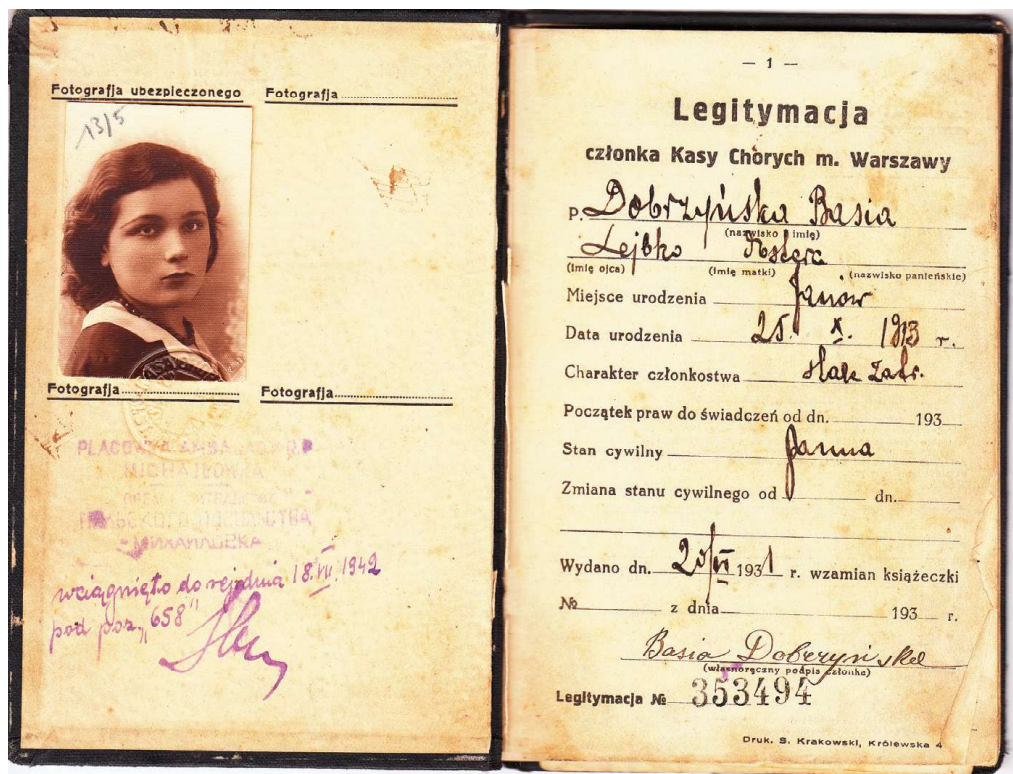 Fotografja ubezpieczonego
Fotografja
13/5
Fotografja
Fotografja
PLACÓWKA AMBASADY R.P
MICHAJŁÓWKA
МИХАЙЛОВКА
wciągnięto do rej. dnia 18.VII.1942
pod poz. „658”
— 1 —
Legitymacja
członka Kasy Chorych m. Warszawy
P. Dobrzyńska Basia
(nazwisko i imię)
Lejbko
(imię ojca) (imię matki) (nazwisko panieńskie)
Miejsce urodzenia Janów
Data urodzenia 25. X. 1913 r.
Charakter członkostwa
Początek praw do świadczeń od dn. 193
Stan cywilny Panna
Zmiana stanu cywilnego od dn.
Wydano dn. 20/VI 1931 r. wzamian książeczki
№ z dnia 193 r.
Basia Dobrzyńska
(własnoręczny podpis członka)
Legitymacja № 353494
Druk. S. Krakowski, Królewska 4